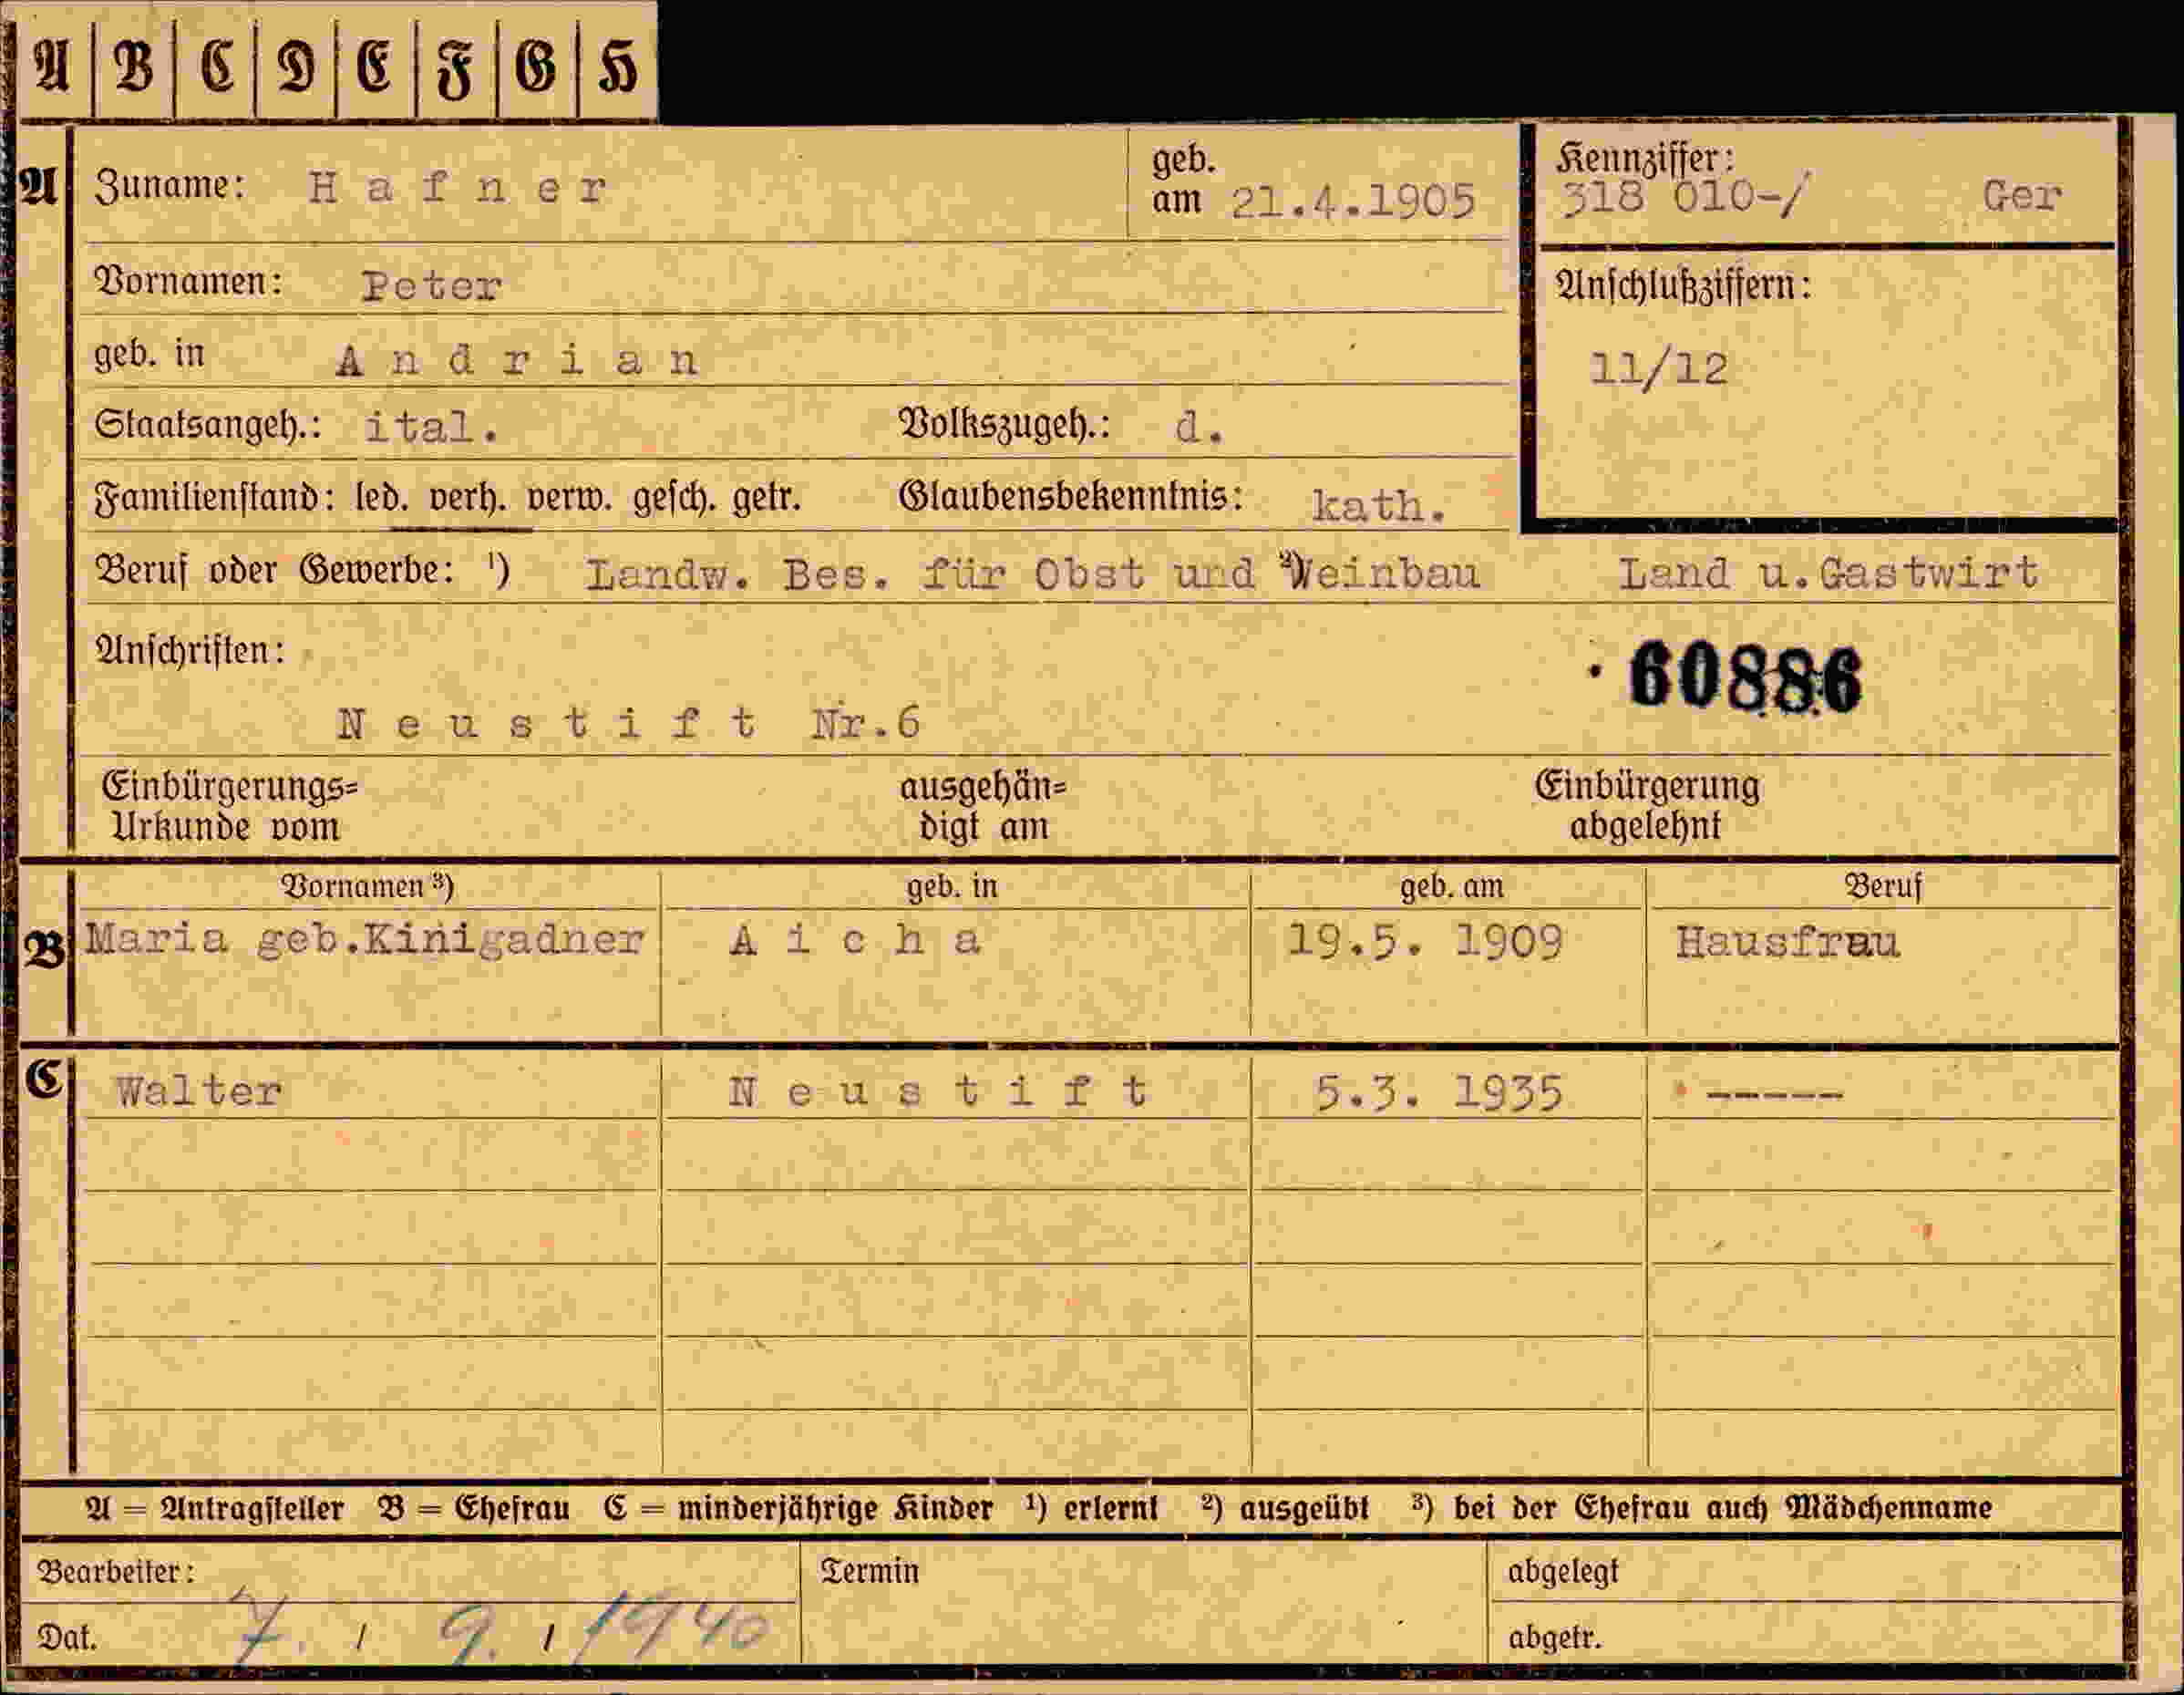 A B C D E F G H
A Zuname: Hafner geb. am 21.4.1905 Kennziffer: 318 010-/ Ger
Vornamen: Peter Anschlußziffern:
geb. in Andrian 11/12
Staatsangeh.: ital. Volkszugeh.: d.
Familienstand: led. verh. verw. gesch. getr. Glaubensbekenntnis: kath.
Beruf oder Gewerbe: ¹) Landw. Bes. für Obst und ²)Weinbau Land u.Gastwirt
Anschriften: 60886
Neustift Nr.6
Einbürgerungs= ausgehän= Einbürgerung
Urkunde vom digt am abgelehnt
Vornamen ³) geb. in geb. am Beruf
B Maria geb.Kinigadner Aicha 19.5. 1909 Hausfrau
C Walter Neustift 5.3. 1935 -----
A = Antragsteller B = Ehefrau C = minderjährige Kinder ¹) erlernt ²) ausgeübt ³) bei der Ehefrau auch Mädchenname
Bearbeiter: Termin abgelegt
Dat. 7. / 9. / 1940 abgetr.